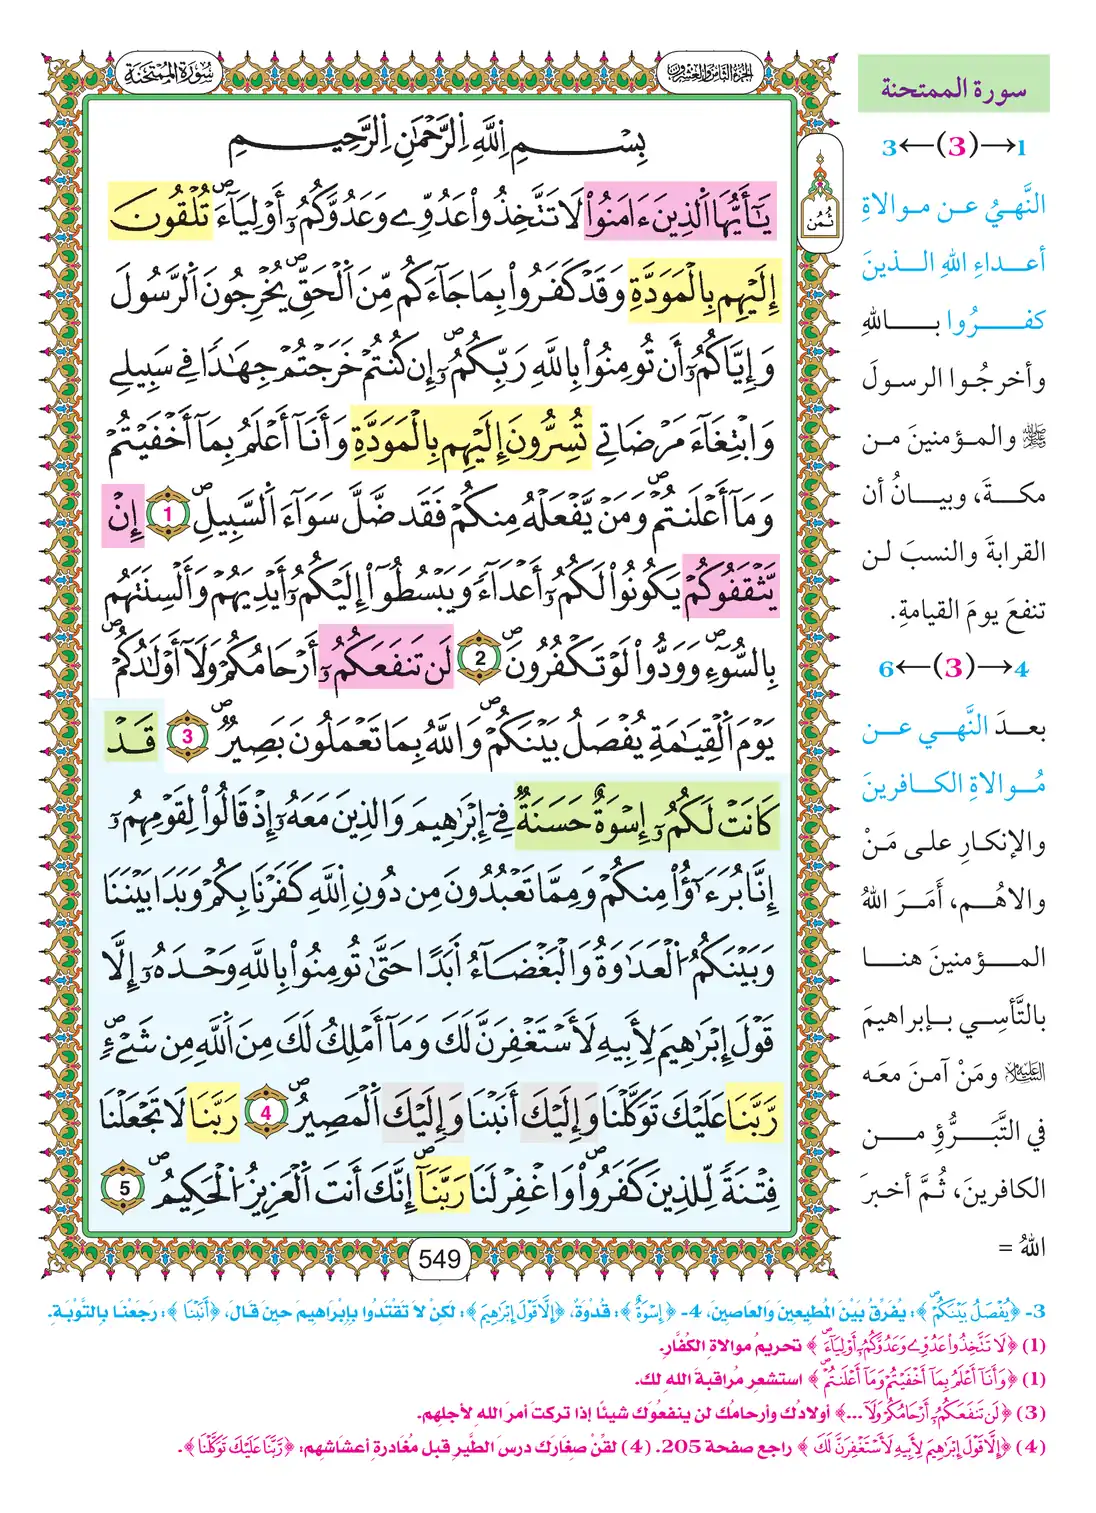 سورة الممتحنة
الجزء الثامن والعشرون
بِسْمِ اِللَّهِ اِلرَّحْمَٰنِ اِلرَّحِيمِ
يَٰٓأَيُّهَا اَلذِينَ ءَامَنُواْ لَا تَتَّخِذُواْ عَدُوِّے وَعَدُوَّكُمُۥٓ أَوْلِيَآءَۖ تُلْقُونَ
إِلَيْهِم بِالْمَوَدَّةِ وَقَدْ كَفَرُواْ بِمَا جَآءَكُم مِّنَ اَلْحَقِّۖ يُخْرِجُونَ اَلرَّسُولَ
وَإِيَّاكُمُۥٓ أَن تُومِنُواْ بِاللَّهِ رَبِّكُمُۥٓۖ إِن كُنتُمْ خَرَجْتُمْ جِهَٰدًا فِے سَبِيلِے
وَابْتِغَآءَ مَرْضَاتِے تُسِرُّونَ إِلَيْهِم بِالْمَوَدَّةِ وَأَنَآ أَعْلَمُ بِمَآ أَخْفَيْتُمْ
وَمَآ أَعْلَنتُمْۖ وَمَنْ يَّفْعَلْهُ مِنكُمْ فَقَد ضَّلَّ سَوَآءَ اَلسَّبِيلِۖ 1 إِنْ
يَّثْقَفُوكُمْ يَكُونُواْ لَكُمُۥٓ أَعْدَآءً وَيَبْسُطُوٓاْ إِلَيْكُمُۥٓ أَيْدِيَهُمْ وَأَلْسِنَتَهُم
بِالسُّوٓءِۖ وَوَدُّواْ لَوْ تَكْفُرُونَۖ 2 لَن تَنفَعَكُمُۥٓ أَرْحَامُكُمْ وَلَآ أَوْلَٰدُكُمْۖ
يَوْمَ اَلْقِيَٰمَةِ يُفْصَلُ بَيْنَكُمْۖ وَاللَّهُ بِمَا تَعْمَلُونَ بَصِيرٌۖ 3 قَدْ
كَانَتْ لَكُمُۥٓ إِسْوَةٌ حَسَنَةٌ فِےٓ إِبْرَٰهِيمَ وَالذِينَ مَعَهُۥٓ إِذْ قَالُواْ لِقَوْمِهِمُۥٓ
إِنَّا بُرَءَٰٓؤُاْ مِنكُمْ وَمِمَّا تَعْبُدُونَ مِن دُونِ اِللَّهِ كَفَرْنَا بِكُمْ وَبَدَا بَيْنَنَا
وَبَيْنَكُمُ اُلْعَدَٰوَةُ وَالْبَغْضَآءُ أَبَدًا حَتَّىٰ تُومِنُواْ بِاللَّهِ وَحْدَهُۥٓ إِلَّا
قَوْلَ إِبْرَٰهِيمَ لِأَبِيهِ لَأَسْتَغْفِرَنَّ لَكَ وَمَآ أَمْلِكُ لَكَ مِنَ اَللَّهِ مِن شَےْءٍۖ
رَّبَّنَا عَلَيْكَ تَوَكَّلْنَا وَإِلَيْكَ أَنَبْنَا وَإِلَيْكَ اَلْمَصِيرُۖ 4 رَبَّنَا لَا تَجْعَلْنَا
فِتْنَةً لِّلذِينَ كَفَرُواْ وَاغْفِرْ لَنَا رَبَّنَآۖ إِنَّكَ أَنتَ اَلْعَزِيزُ اُلْحَكِيمُۖ 5
549
ثُمُن
سورة الممتحنة
1→(3)←3
النَّهيُ عن موالاةِ
أعداءِ اللهِ الذينَ
كفرُوا باللهِ
وأخرجُوا الرسولَ
ﷺ والمؤمنينَ من
مكةَ، وبيانُ أن
القرابةَ والنسبَ لن
تنفعَ يومَ القيامةِ.
4→(3)←6
بعدَ النَّهي عن
مُوالاةِ الكافرينَ
والإنكارِ على مَنْ
والاهُم، أَمَرَ اللهُ
المؤمنينَ هنا
بالتَّأسِي بإبراهيمَ
عليه السلام ومَنْ آمنَ معَه
في التَّبَرُّؤِ من
الكافرينَ، ثُمَّ أخبرَ
اللهُ =
3- ﴿يُفْصَلُ بَيْنَكُمْۖ﴾: يُفَرَّقُ بَيْنَ المُطِيعينَ وَالعَاصِينَ، 4- ﴿إِسْوَةٌ﴾: قُدْوَةٌ، ﴿إِلَّا قَوْلَ إِبْرَٰهِيمَ﴾: لَكِنْ لَا تَقْتَدُوا بِإِبْرَاهِيمَ حِينَ قَالَ، ﴿أَنَبْنَا﴾: رَجَعْنَا بِالتَّوْبَةِ.
(1) ﴿لَا تَتَّخِذُواْ عَدُوِّے وَعَدُوَّكُمُۥٓ أَوْلِيَآءَۖ﴾ تحريمُ موالاةِ الكفَّارِ.
(1) ﴿وَأَنَآ أَعْلَمُ بِمَآ أَخْفَيْتُمْ وَمَآ أَعْلَنتُمْۖ﴾ استشعر مُراقبةَ اللهِ لك.
(3) ﴿لَن تَنفَعَكُمُۥٓ أَرْحَامُكُمْ وَلَآ ...﴾ أولادُك وأرحامُك لن ينفعُوك شيئًا إذا تركتَ أمرَ اللهِ لأجلِهم.
(4) ﴿إِلَّا قَوْلَ إِبْرَٰهِيمَ لِأَبِيهِ لَأَسْتَغْفِرَنَّ لَكَ﴾ راجع صفحة 205. (4) لقِّنْ صغارَك درسَ الطَّيرِ قبل مُغادرةِ أعشاشِهم: ﴿رَّبَّنَا عَلَيْكَ تَوَكَّلْنَا﴾.